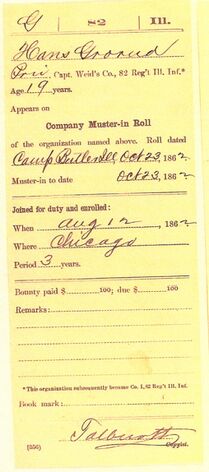 G 82 Ill.
Hans Groeud
Pri, Capt. Weid's Co., 82 Reg't Ill. Inf.*
Age 19 years.
Appears on
Company Muster-in Roll
of the organization named above. Roll dated
Camp Butler Ill Oct 23, 1862.
Muster-in to date Oct 23, 1862.
Joined for duty and enrolled:
When Aug 12, 1862
Where Chicago
Period 3 years.
Bounty paid $ 100; due $ 100
Remarks:
*This organization subsequently became Co. I, 82 Reg't Ill. Inf.
Book mark:
(356) Copyist.